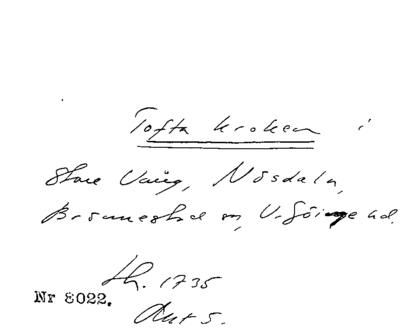 Tofta kroken i
Store Vång, Nösdala,
Brönnestad sn, V. Göinge hd.
th. 1735
Ant 5.
Nr 8022.